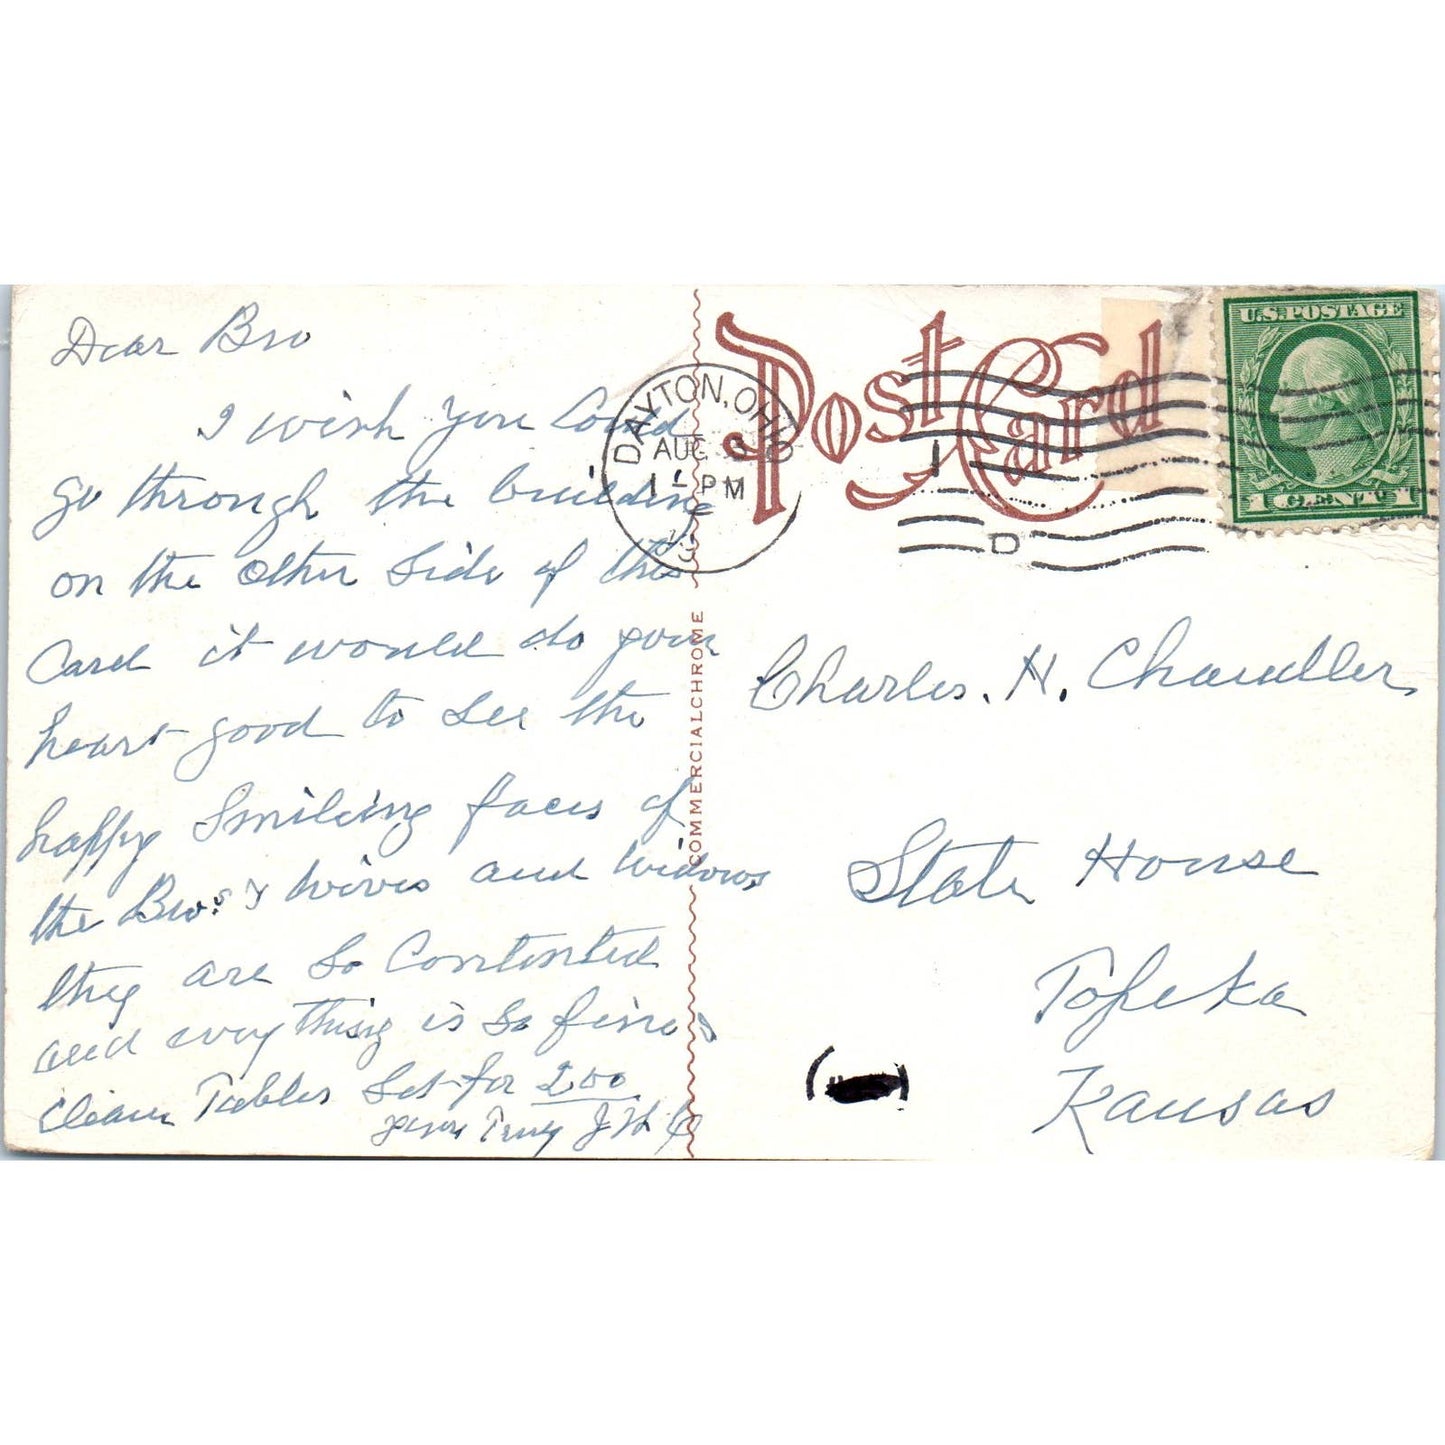 Dear Bro
I wish you could
go through the building
on the other side of this
card it would do your
heart good to see the
happy smiling faces of
the Bros. & wives and widows
they are so contented
and everything is so fine
clean Tables set for 200
yours Truly J H C
COMMERCIALCHROME
Post Card
DAYTON, OHIO
AUG
1 - PM
1
D
U.S. POSTAGE
1 CENT 1
Charles. H. Chandler
State House
Topeka
Kansas